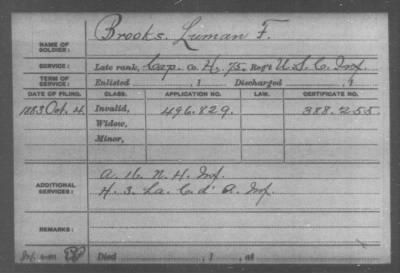 NAME OF SOLDIER: Brooks, Luman F.
SERVICE: Late rank, Cap. Co. H, 75. Reg't U.S.C. Inf.
TERM OF SERVICE: Enlisted , 1 Discharged , 1
DATE OF FILING. CLASS. APPLICATION NO. LAW. CERTIFICATE NO.
1883 Oct. 4. Invalid, 496.829. 388.255.
Widow,
Minor,
ADDITIONAL SERVICES: A. 16. N. H. Inf.
H. 3. La. C. d' A. Inf.
REMARKS:
Died , 1 , at